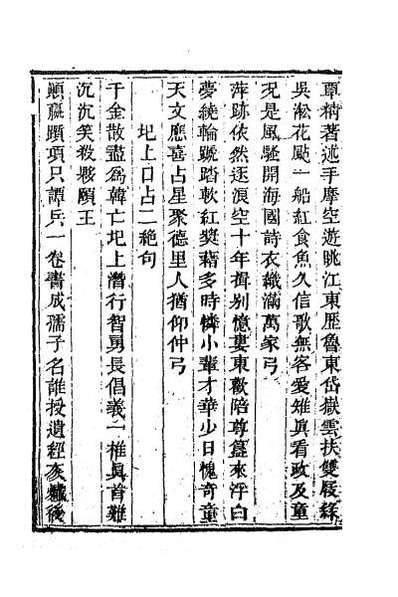 覃精著述手摩空遊眺江東歷魯東岱嶽雲扶雙屐綠
吳淞花颭一船紅食魚久信歌無客愛雉眞看政及童
况是風騷開海國詩衣織滿萬家弓
萍跡依然逐浪空十年揖別憶婁東歡陪尊簋來浮白
夢繞輪蹏踏軟紅奬藉多時憐小輩才華少日愧奇童
天文應喜占星聚德里人猶仰仲弓
圯上口占二絶句
千金散盡爲韓亡圯上潛行智勇長倡義一椎眞首難
沉沉笑殺夥頤王
顚嬴蹟項只譚兵一卷書成孺子名誰授遺經亥爌後